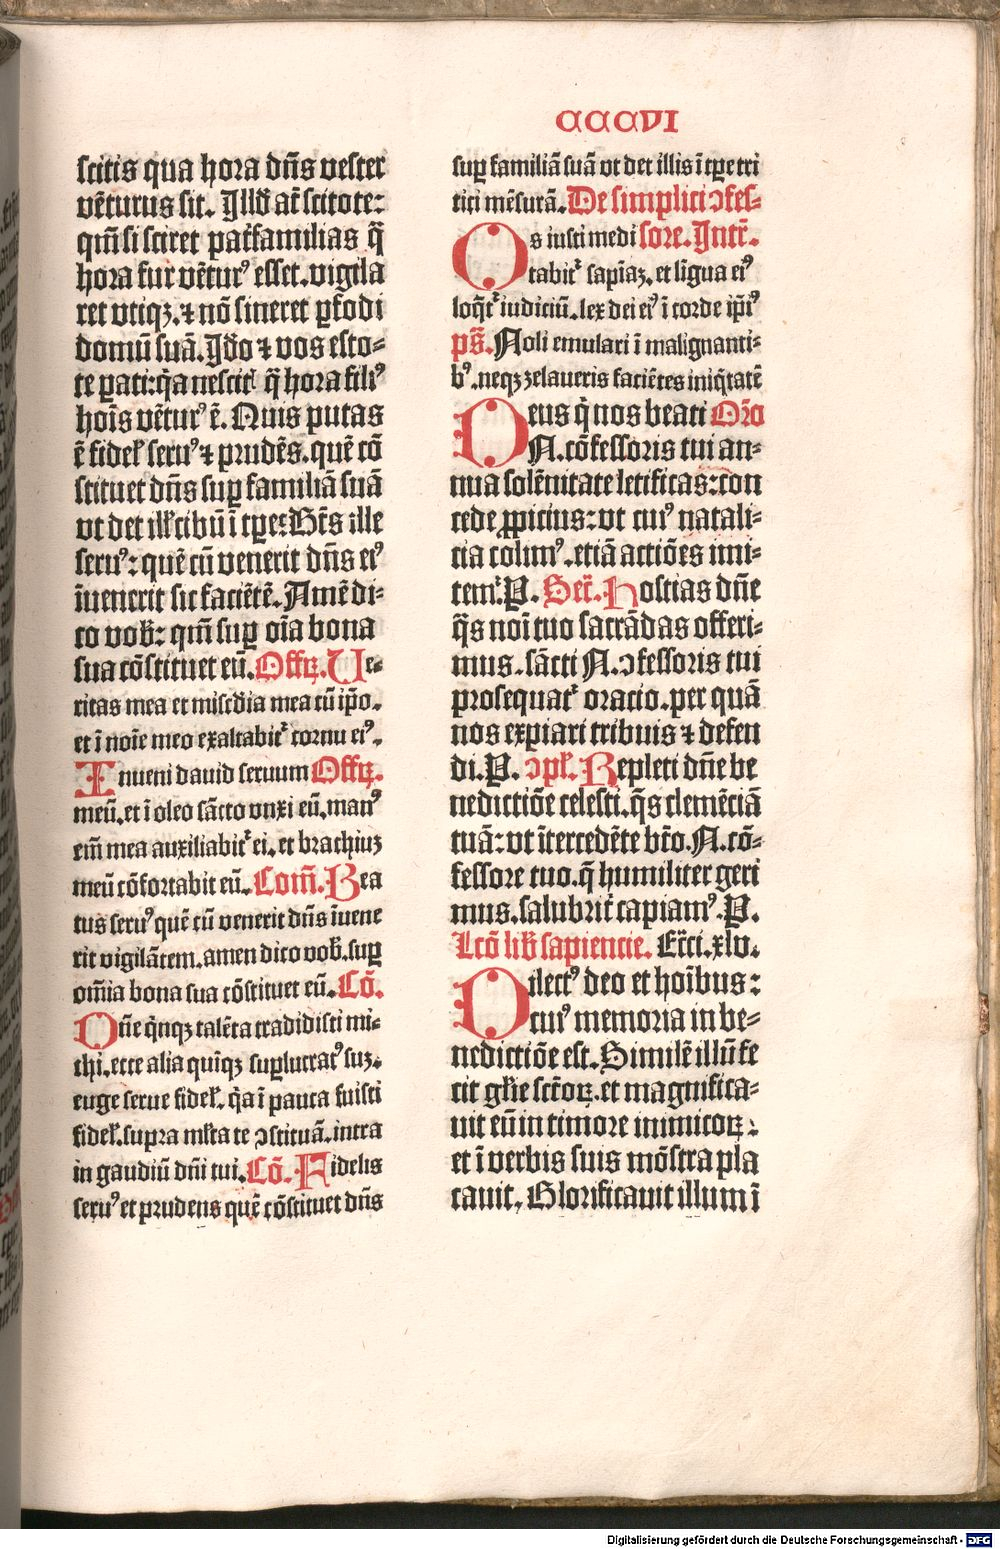 CCCVI
scitis qua hora dn̄s vester
vētur​us sit. Illđ at̄ scitote:
qm̄ si sciret pat̄familias q̄
hora fur vētur⁹ esset. vigila
ret vtiqꝫ. ⁊ nō sineret ꝑfodi
domū suā. Iđo ⁊ vos esto⸗
te ꝑati: q̇a nescit͛ q̄ hora fili⁹
hoīs vētur⁹ ē. Quis putas
ē fidel̛ seru⁹ ⁊ prudēs. quē cō
stituet dn̄s suꝑ familiā suā
vt det ill̛ cibū ī tꝑe: Bt̄s ille
seru⁹: quē cū venerit dn̄s ei⁹
īuenerit sic faciētē. Amē di⸗
co vob̛: qm̄ suꝑ oīa bona
sua cōstituet eū. Offꝝ. Ve⸗
ritas mea et mis̄cđia mea cū ip̄o.
et ī noīe meo exaltabit͛ cornu ei⁹.
Inueni dauid seruum Offꝝ.
meū. et ī oleo sācto vnxi eū. man⁹
em̄ mea auxiliabit͛ ei. et brachiuꝫ
meū cōfortabit eū. Com̄. Bea
tus seru⁹ quē cū venerit dn̄s īuene
rit vigilātem. amen dico vob̛. suꝑ
om̄ia bona sua cōstituet eū. Cō.
Dn̄e q̇nqꝫ talēta tradidisti mi⸗
chi. ecce alia quīqꝫ suꝑlucrat⁹ suꝫ.
euge serue fidel̛. q̇a ī pauca fuisti
fidel̛. supra ml̛ta te ↄstituā. intra
in gaudiū dn̄i tui. Cō. Fidelis
seru⁹ et prudens quē cōstituet dn̄s
suꝑ familiā suā vt det illis ī tꝑe tri
tici mēsurā. De simplici ↄfes⸗
Os iusti medi sore. Intr̄.
tabit͛ sapīaꝫ. et līgua ei⁹
loq̄t͛ iudiciū. lex dei ei⁹ ī corde ip̄i⁹
ps̄. Noli emulari ī malignanti⸗
b⁹. neqꝫ zelaueris faciētes iniq̇tatē
Deus q̇ nos beati Or̄o
N. cōfessoris tui an⸗
nua solēnitate letificas: con
cede ꝓpicius: vt cui⁹ natali⸗
cia colim⁹. etiā actiōes imi⸗
tem͛. P. Secr̄. Hostias dn̄e
q̄s noī tuo sacrādas offeri⸗
mus. sācti N. ↄfessoris tui
prosequat͛ oracio. per quā
nos expiari tribuis ⁊ defen
di. P. ↄpl̛. Repleti dn̄e be
nedictiōe celesti. q̄s clemēciā
tuā: vt ītercedēte bt̄o. N. cō⸗
fessore tuo. q̄ humiliter geri
mus. salubrit͛ capiam⁹. P.
Lcō lib̛ sapiencie. Ec̄ci. xlv.
Dilect⁹ deo et hoībus:
cui⁹ memoria in be⸗
nedictiōe est. Similē illū fe
cit gl̛ie sc̄toꝝ. et magnifica⸗
uit eū in timore inimicoꝝ:
et ī verbis suis mōstra pla
cauit. Glorificauit illum ī
Digitalisierung gefördert durch die Deutsche Forschungsgemeinschaft - DFG